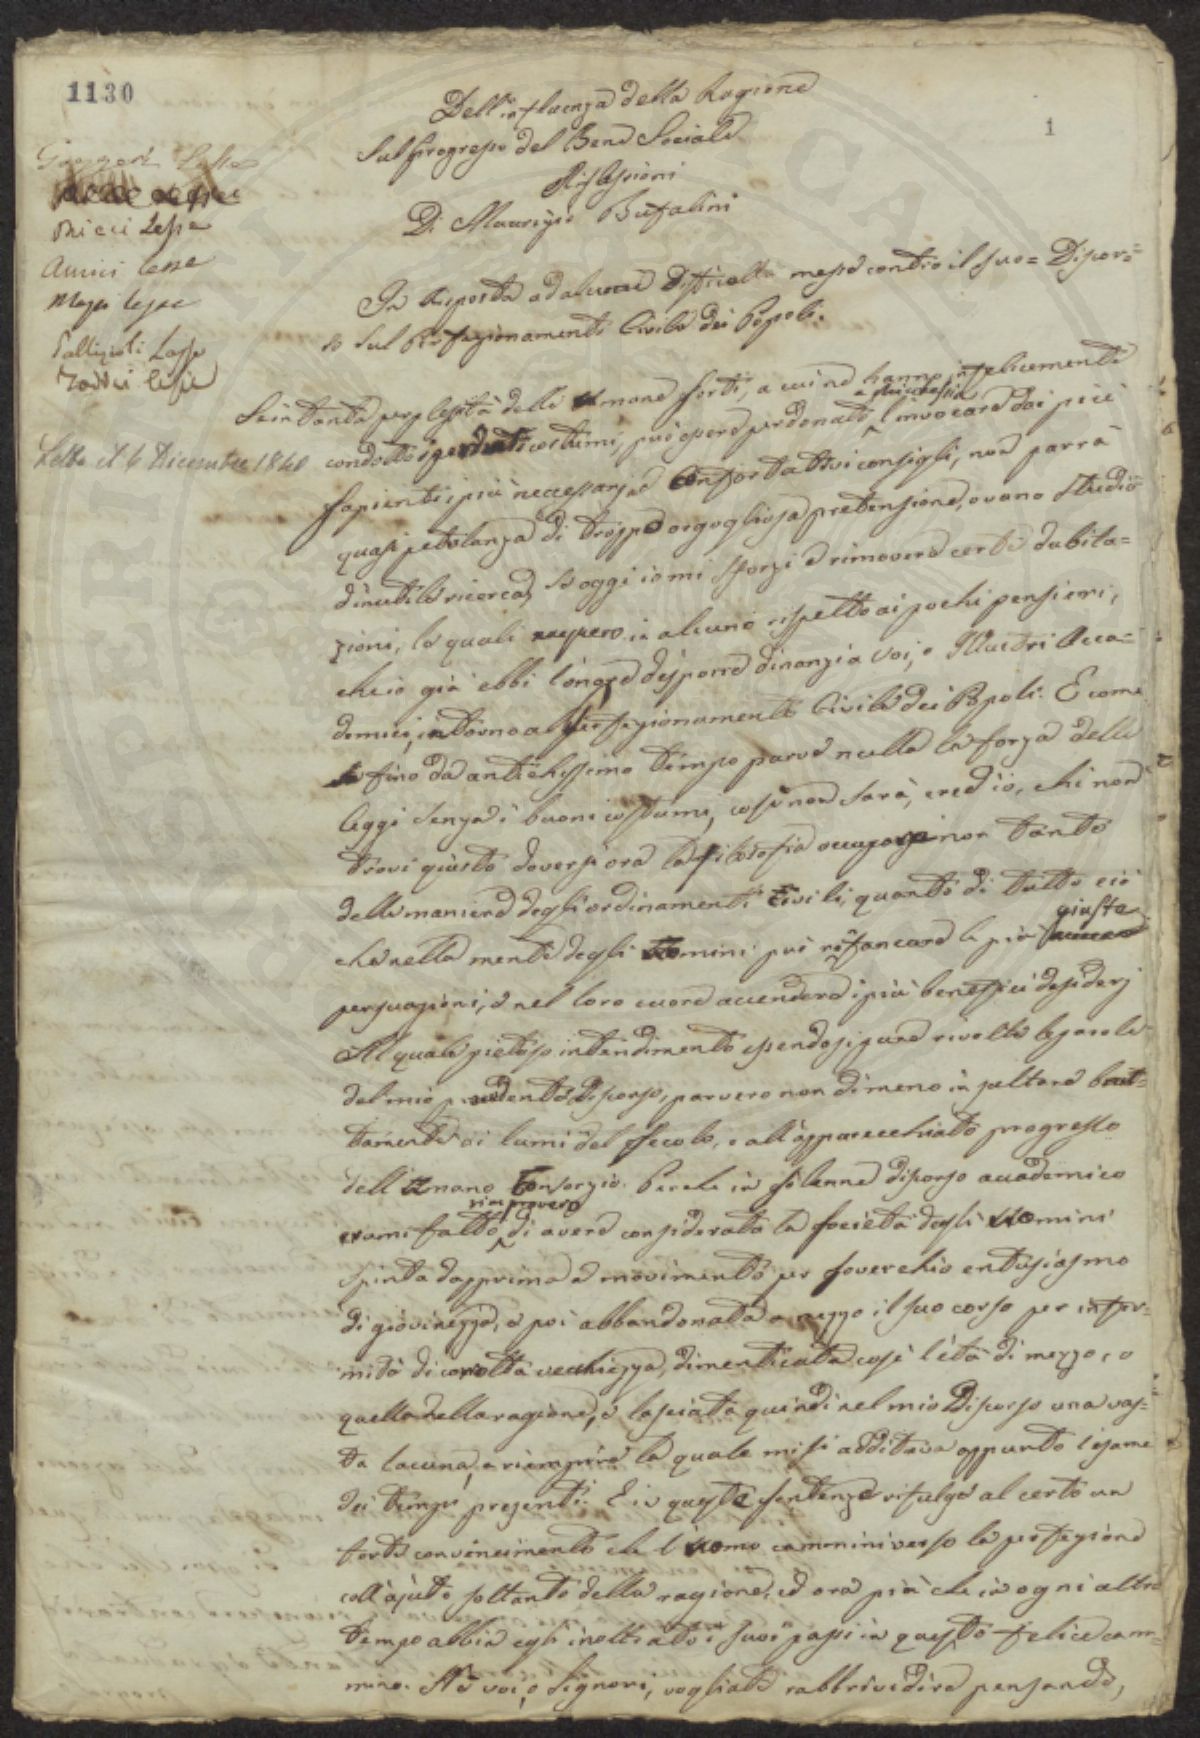 1130
1
Dell'influenza della Ragione
Sul progresso del Bene Sociale
Riflessioni
Di Maurizio Bufalini
In Risposta ad alcune Difficoltà messe contro il suo = Discor=
so Sul Perfezionamento Civile dei Popoli.
Lesse
Ricci Lesse
Amici lesse
Mazza lesse
Pallizioli Lesse
Zoddei lesse
Letto il 6 Dicembre 1840
Se in tanta perplessità delle umane sorti, a cui ne hanno infelicemente
condotto i perduti costumi, può essere perdonato l'invocare dai più
sapienti i più necessarj e confortativi consigli, non parrà
quasi petulanza di troppo orgogliosa pretensione, o vano studio
d'inutile ricerca, se oggi io mi sforzi a rimovere certe dubita=
zioni, le quali nacquero in alcuno rispetto ai pochi pensieri,
che io già ebbi l'onore d'esporre dinanzi a voi, o Illustri Acca=
demici, intorno al perfezionamento Civile dei Popoli. E come
fino da antichissimo tempo parve nulla la forza delle
leggi senza i buoni costumi, così non sarà, cred'io, chi non
trovi giusto doversi ora la filosofia occupare non tanto
delle maniere degli ordinamenti Civili, quanto di tutto ciò
giuste
che nella mente degli uomini può rifancare le più
persuasioni, e nel loro cuore accendere i più benefici desiderj
Al quale pietoso intendimento essendosi pure rivolte le parole
del mio precedente Discorso, parvero non di meno insultare brut=
tamente ai lumi del secolo, e all'apparecchiato progresso
dell'umano Consorzio. Perchè in solenne discorso accademico
rimprovero
erami fatto di avere considerata la società degli uomini
spinta dapprima a movimento per soverchio entusiasmo
di giovinezza, e poi abbandonata a mezzo il suo corso per infer=
mità di corrotta vecchiezza, dimenticata così l'età di mezzo, o
quella della ragione, e lasciata quindi nel mio Discorso una vas=
ta lacuna, a riempire la quale mi si additava appunto l'esame
dei tempi presenti. E in queste sentenze rifulge al certo un
forte convincimento che l'uomo cammini verso la perfezione
coll'ajuto soltanto della ragione, ed ora più che in ogni altro
tempo abbia egli inoltrati i suoi passi in questo felice cam=
mino. Nè voi, o Signori, vogliate rabbrividire pensando,